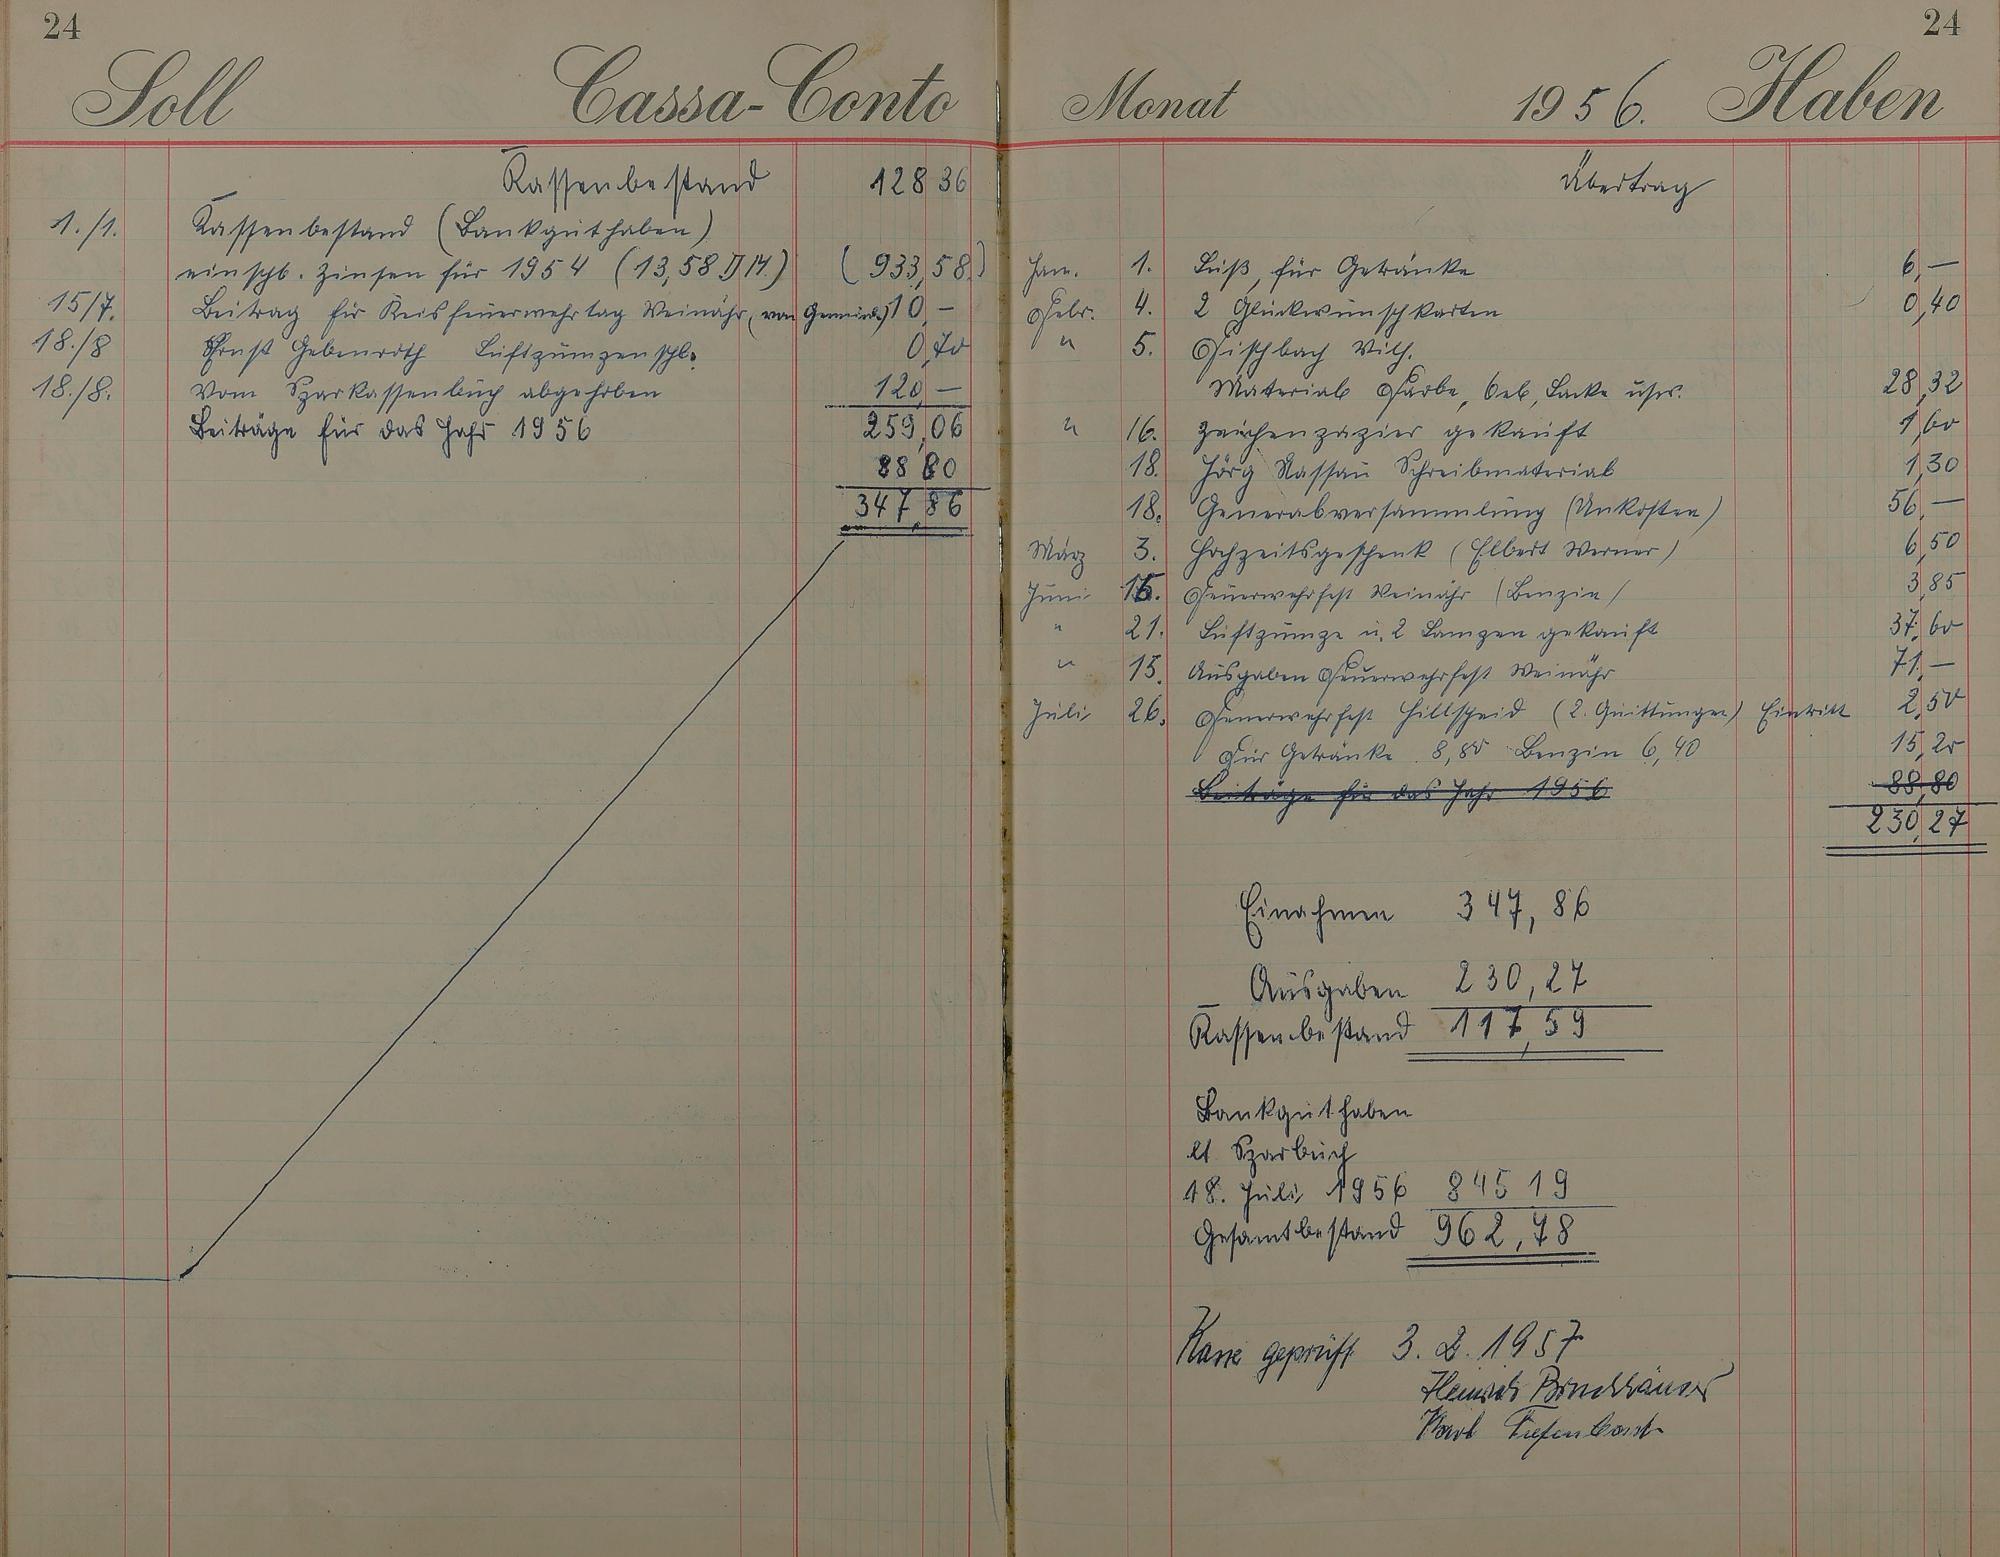 24
Soll Cassa-Conto
Kassenbestand 128 36
1./1. Kassenbestand (Bankguthaben)
einschl. Zinsen für 1954 (13,58 DM.) (933,58.)
15/7. Beitrag für Kreisfeuerwehrtag Weinähr (von Gemeinde) 10,—
18./8 Ernst Gebenroth Luftpumpenschl. 0,70
18./8. Vom Sparkassenbuch abgehoben 120,—
259,06
Beiträge für das Jahr 1956
88 80
347,86
24
Monat 1956. Haben
Übertrag
Jan. 1. Luß, für Getränke 6,—
Febr. 4. 2 Glückwunschkarten 0,40
" 5. Fischbach Wilh.
Material Farbe, Oel, Lacke usw. 28,32
" 16. Zeichenpapier gekauft 1,60
18. Jörg Nassau Schreibmaterial 1,30
18. Generalversammlung (Unkosten) 56,—
März 3. Hochzeitsgeschenk (Elbert Werner) 6,50
Juni 15. Feuerwehrfest Weinähr (Benzin) 3,85
" 21. Luftpumpe u. 2 Lampen gekauft 37,60
" 15. Ausgaben Feuerwehrfest Weinähr 71,—
Juli 26. Feuerwehrfest Hillscheid (2. Quittungen) Eintritt 2,50
Für Getränke 8,80 Benzin 6,40 15,20
Beiträge für das Jahr 1956 88,80
230,27
Einahmen 347,86
Ausgaben 230,27
Kassenbestand 117,59
Bankguthaben
lt. Sparbuch
18. Juli 1956 845 19
Gesamtbestand 962,78
Kasse geprüft 3. 2. 1957
Heinrich Bruchhäuser
Karl Tiefenbach